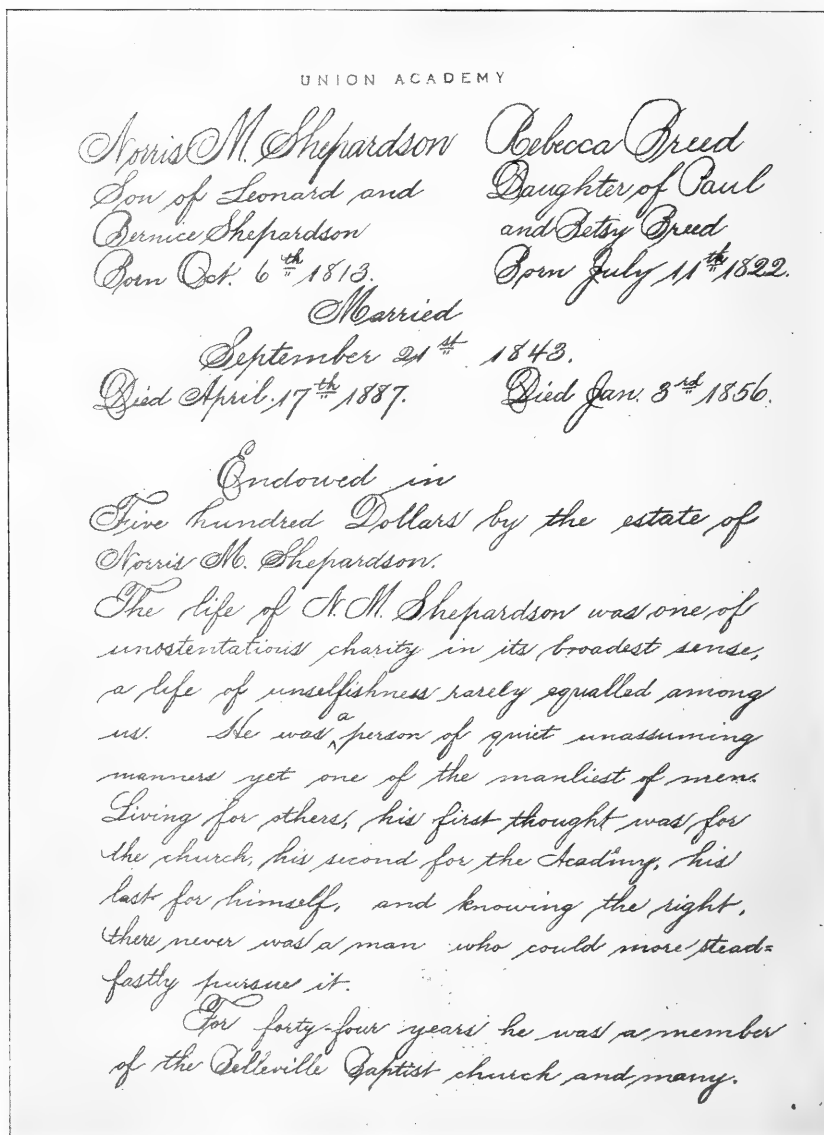 UNION ACADEMY
Norris M. Shepardson Rebecca Breed
Son of Leonard and Daughter of Paul
Bernice Shepardson and Betsy Breed
Born Oct. 6th 1813. Born July 11th 1822.
Married
September 21st 1843.
Died April 17th 1887. Died Jan. 3rd 1856.
Endowed in
Five hundred Dollars by the estate of
Norris M. Shepardson.
The life of N. M. Shepardson was one of
unostentatious charity in its broadest sense,
a life of unselfishness rarely equalled among
us. He was a person of quiet unassuming
manners yet one of the manliest of men.
Living for others, his first thought was for
the church, his second for the Academy, his
last for himself, and knowing the right,
there never was a man who could more stead=
fastly pursue it.
For forty-four years he was a member
of the Belleville Baptist church and many.